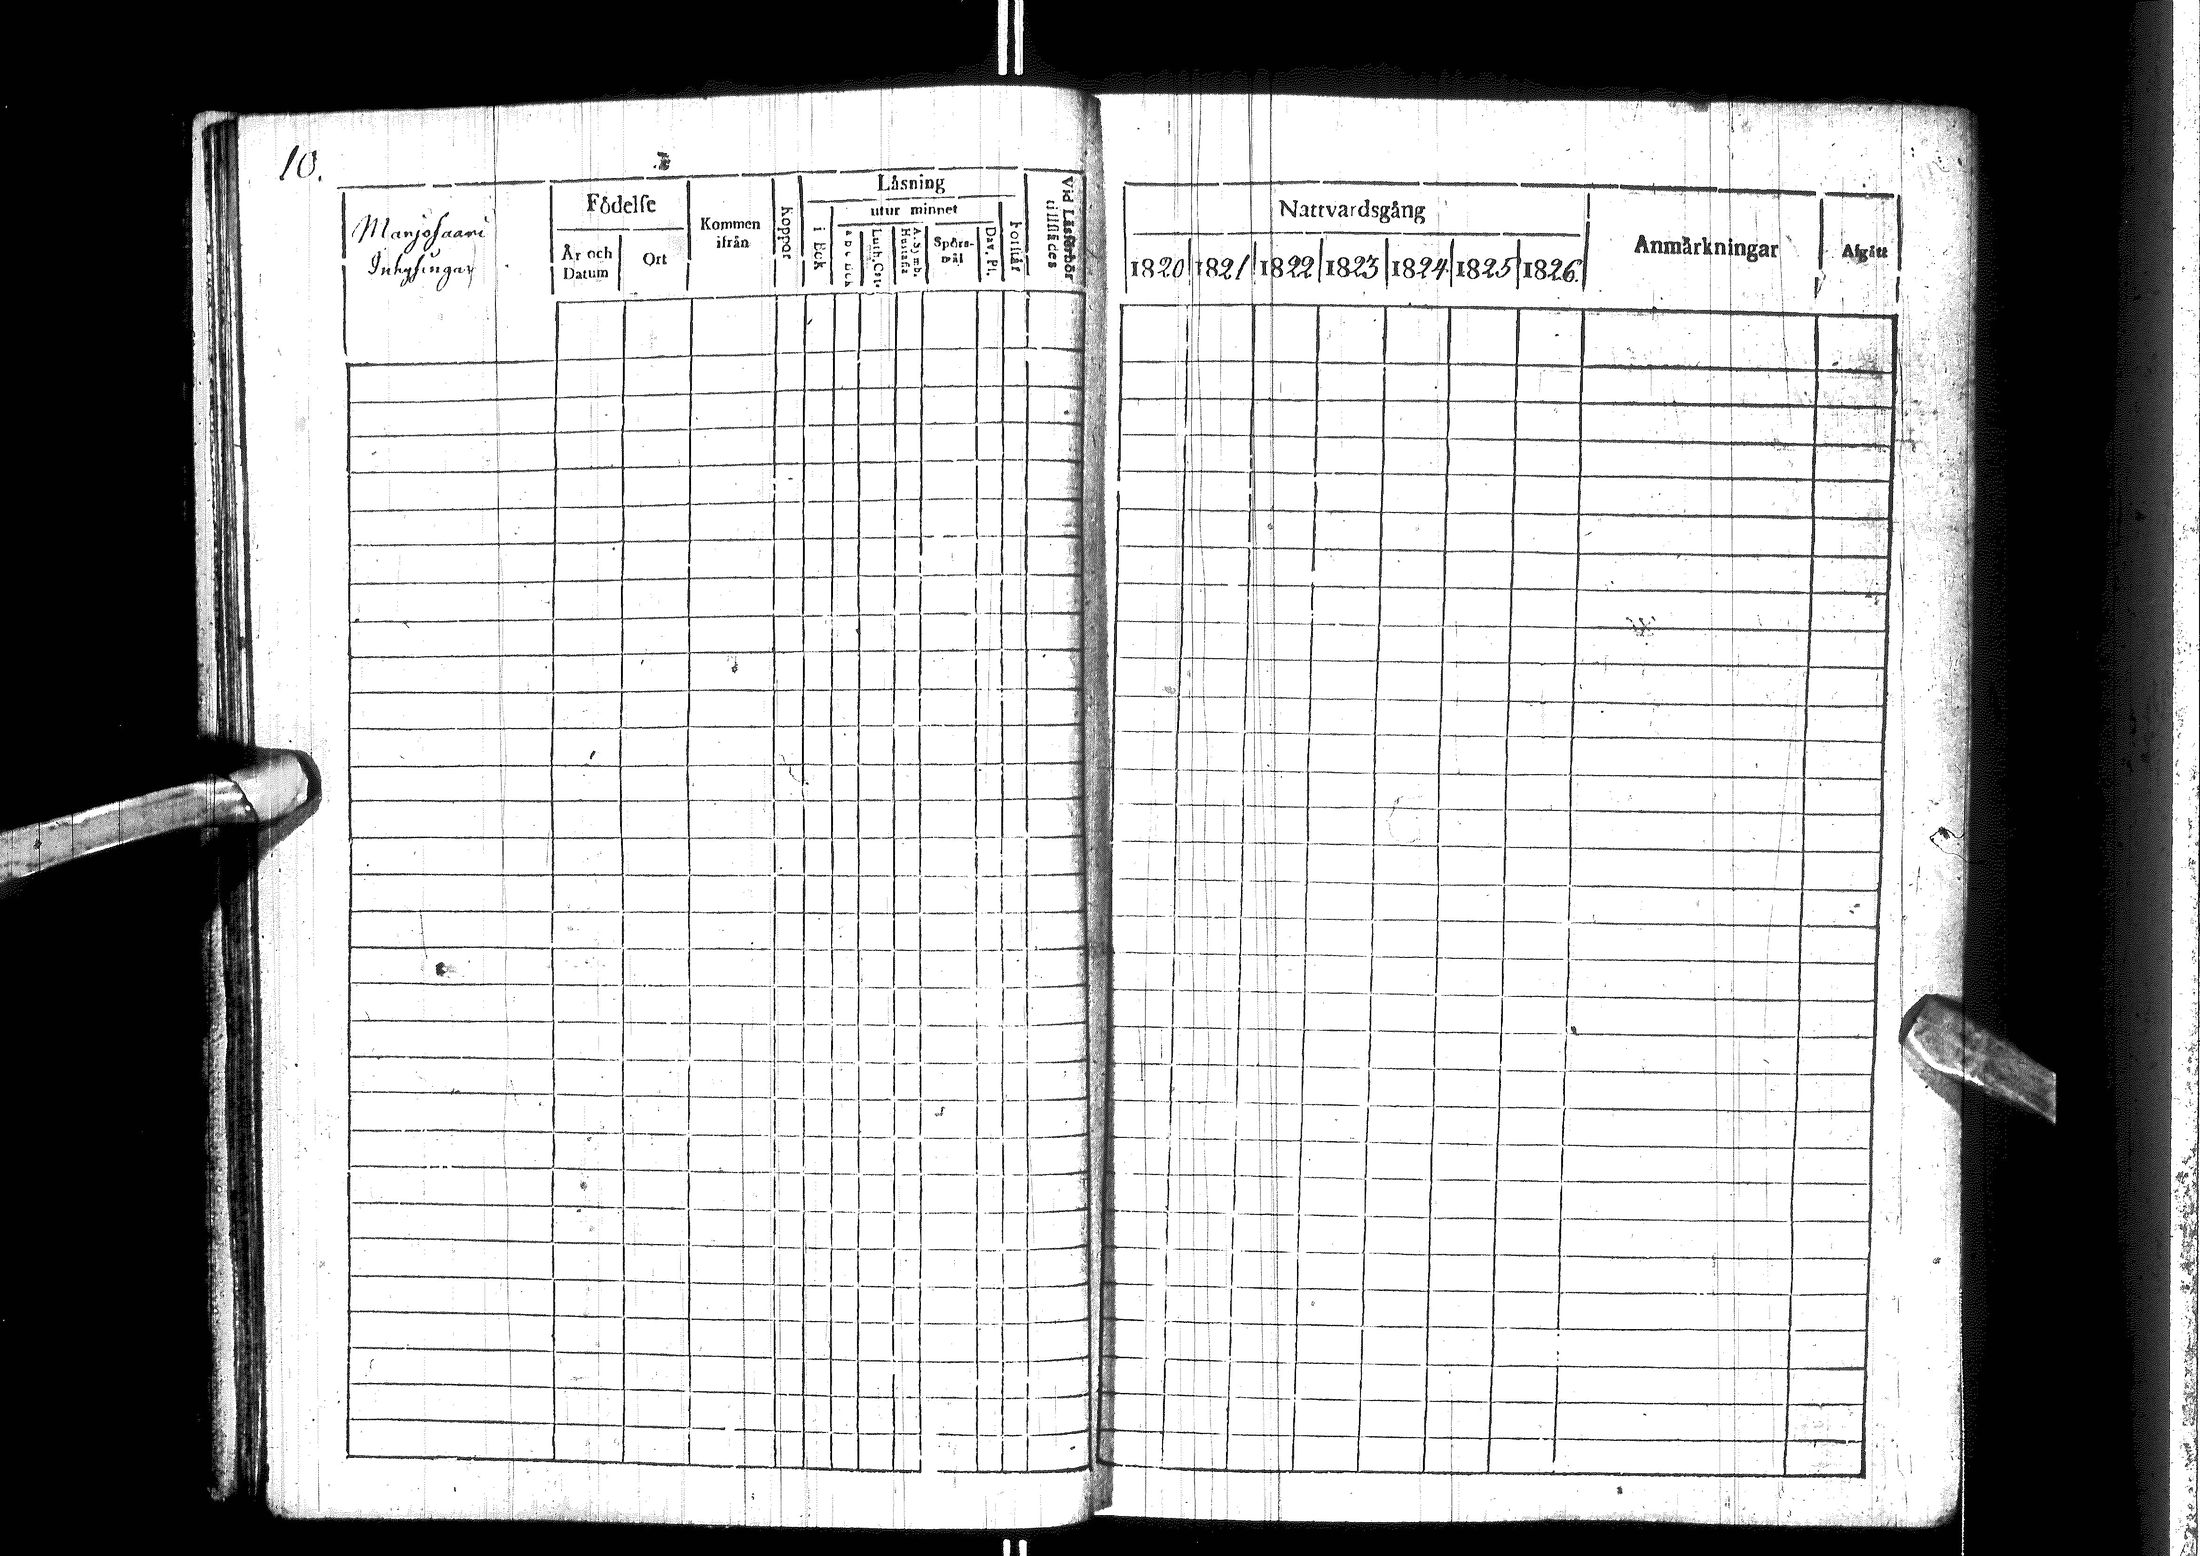 10.
Marjosaari
Inhysingar
Födelse
År och
Datum
Ort
Kommen
ifrån
Koppor
Läsning
i Bok
utur minnet
a b c Bok
Luth. Cat.
A. Symb.
Hustafla
Spörs-
mål
Dav. Ps.
Förstår
Vid Läsförhör
tillstädes
Nattvardsgång
1820 1821 1822 1823 1824 1825 1826.
Anmärkningar
Afgått